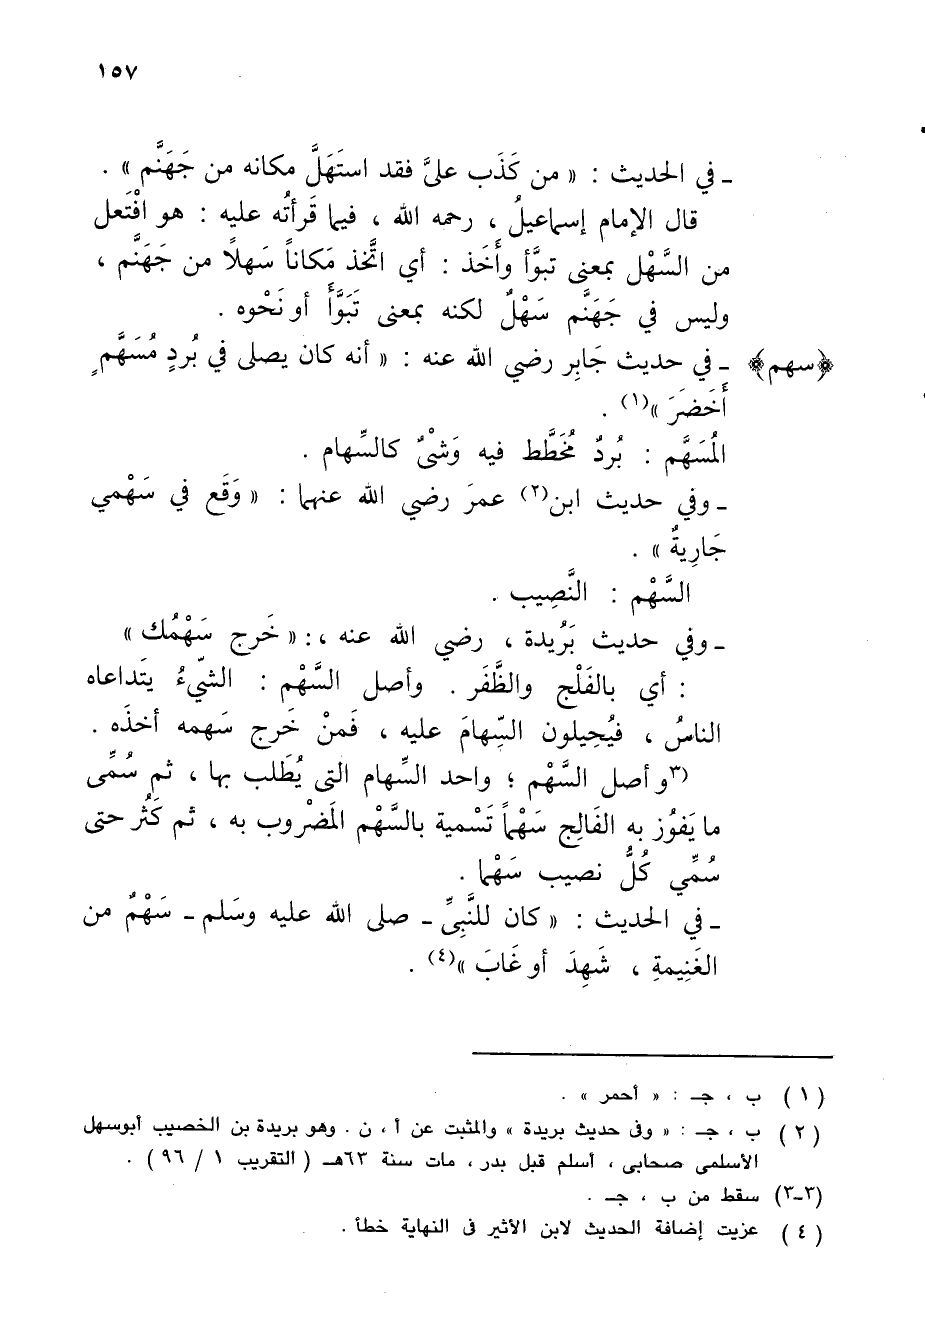 ١٥٧
ـ في الحديث : « من كَذَب عليَّ فقد استَهَلَّ مكانه من جَهَنَّم » .
قال الإمام إسماعيلُ ، رحمه الله ، فيما قَرأتُه عليه : هو افْتَعل
من السَّهْل بمعنى تبوَّأ وأَخَذ : أي اتَّخذ مَكاناً سَهلاً من جَهَنَّم ،
وليس في جَهَنَّم سَهْلٌ لكنه بمعنى تَبَوَّأَ أو نَحْوه .
﴿سهم﴾ ـ في حديث جَابِر رضي الله عنه : « أنه كان يصلى في بُردٍ مُسَهَّمٍ
أَخَضرَ »(١) .
المُسَهَّم : بُردٌ مُخَطَّط فيه وَشْىٌ كالسِّهام .
ـ وفي حديث ابن(٢) عمرَ رضي الله عنهما : « وَقَع في سَهْمي
جَارِيةٌ » .
السَّهْم : النَّصِيب .
ـ وفي حديث بَرُيدة ، رضي الله عنه ،: « خَرج سَهْمُك »
: أي بالفَلْج والظَّفَر . وأصل السَّهْم : الشَّيءُ يتَداعاه
الناسُ ، فيُجيلون السِّهامَ عليه ، فَمنْ خَرج سَهمه أخذَه .
(٣و أصل السَّهْم ؛ واحد السِّهام التى يُطَلب بها ، ثم سُمِّى
ما يَفوُز به الفَالِج سَهْماً تَسْمية بالسَّهْم المَضْروب به ، ثم كَثُر حتى
سُمِّي كُلُّ نصيب سَهْما .
ـ في الحديث : « كان للنَّبِيِّ ـ صلى الله عليه وسَلم ـ سَهْمٌ من
الغَنِيمةِ ، شَهِدَ أو غَابَ »(٤) .
(١) ب ، جـ : « أحمر » .
(٢) ب ، جـ : « وفى حديث بريدة » والمثبت عن أ ، ن . وهو بريدة بن الخصيب أبوسهل
الأسلمى صحابى ، أسلم قبل بدر ، مات سنة ٦٣هـ ( التقريب ١ / ٩٦ ) .
(٣ـ٣) سقط من ب ، جـ .
(٤) عزيت إضافة الحديث لابن الأثير فى النهاية خطأ .